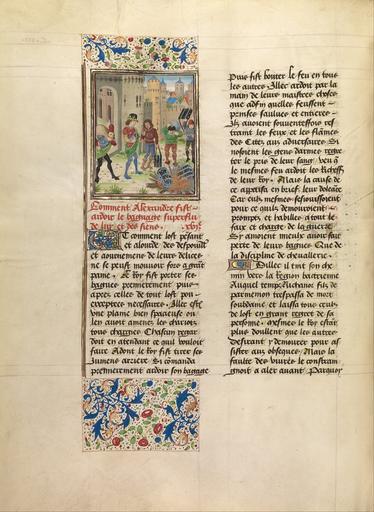 Comment Alexandre fist
ardoir le bagaige superflu
de luy et des siens. xvj
Et comment lost pesant
et alourde des despouilles
et aournemens de leurs delices
ne se peust mouvoir fors a grant
paine. Le Roy fist porter ses
bagues premierement puis
apres celles de tout lost pou
exceptees necessaires. Illec est
une plaine bien spacieuse ou
len avoit amene les chariots
tous charges Chascun regar
doit en attendant ce quil vouloit
faire Adont le Roy fist tirer les
jumens arriere Si comanda
premierement ardoir son bagaige
Puis fist bouter le feu en tous
les autres Illec ardoit par la
main de leurs maistres choses
que adfin quelles feussent
saulves et entieres
Ilz avoient souventesfois
traint les feux et les flames
des Citez aux adversaires Si
nosoient les gens darmes regre
ter le pris de leur sang veu
le mesmes feu ardoit les
de leur Roy. Mais la cause de
ce appaisa en brief leur doleur
Car eulx mesmes sesjouissoient
pour ce quilz demouroient
prompts et habilles a tout le
faix et charge de la guerre
Sy amoient mieulx avoir fait
perte de leurs bagues Que de
la discipline de chevallerie.
Dillec il tint son che
min vers la region bactrienne
Auquel temps Nichanor filz de
parmenion trespassa de mort
soubdaine et laissa tous ceulx
de lost en grant regret de sa
personne. Mesmes le Roy estoit
plus doullent que les autres
Desirant y demourer pour as
sister aux obseques Mais la
faulte des vivres le constrain
gnoit a aler avant Parquoy